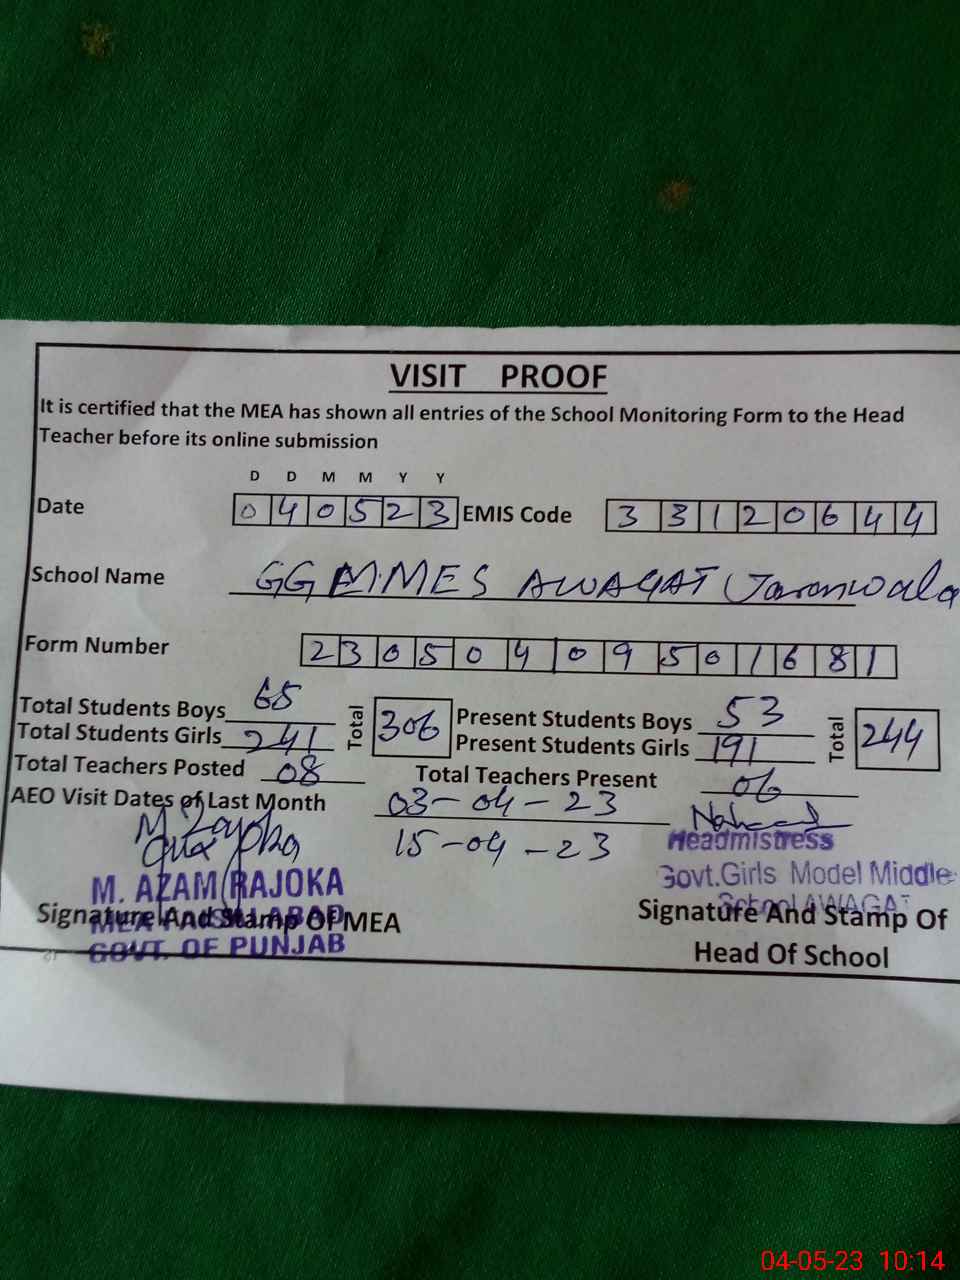 VISIT PROOF
It is certified that the MEA has shown all entries of the School Monitoring Form to the Head
Teacher before its online submission
D D M M Y Y
Date 0 4 0 5 2 3 EMIS Code 3 3 1 2 0 6 4 4
School Name GGMMES AWAGAT Jaranwala
Form Number 2 3 0 5 0 4 0 9 5 0 1 6 8 1
Total Students Boys 65 Total 306 Present Students Boys 53 Total 244
Total Students Girls 241 Present Students Girls 191
Total Teachers Posted 08 Total Teachers Present 06
AEO Visit Dates of Last Month 03-04-23
15-04-23
Headmistress
Govt.Girls Model Middle
School AWAGAT
M. AZAM RAJOKA
MEA FAISALABAD
GOVT. OF PUNJAB
Signature And Stamp Of MEA
Signature And Stamp Of
Head Of School
04-05-23 10:14